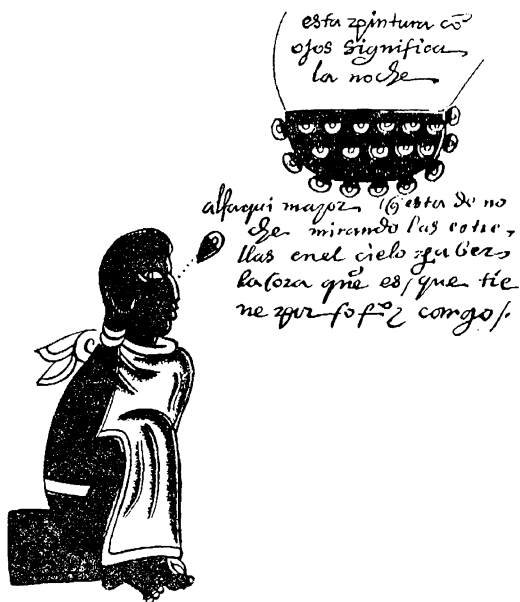 esta pintura cō
ojos significa
la noche
alfaqui mayor q̄ esta de no
che mirando las estre
llas en el cielo pa ber
la ora que es / que tie
ne por ofiº y cargo /.